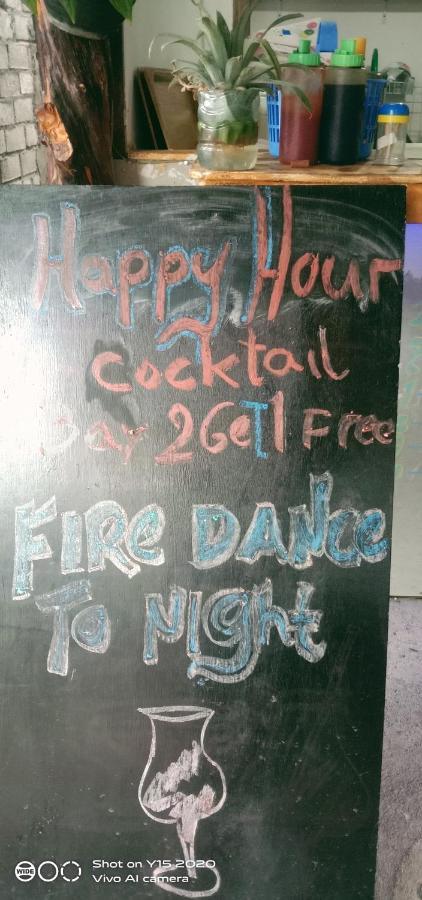 Happy Hour
cocktail
2 Get 1 Free
FIRe DANce
To NIght
WIDE
Shot on Y15 2020
Vivo AI camera